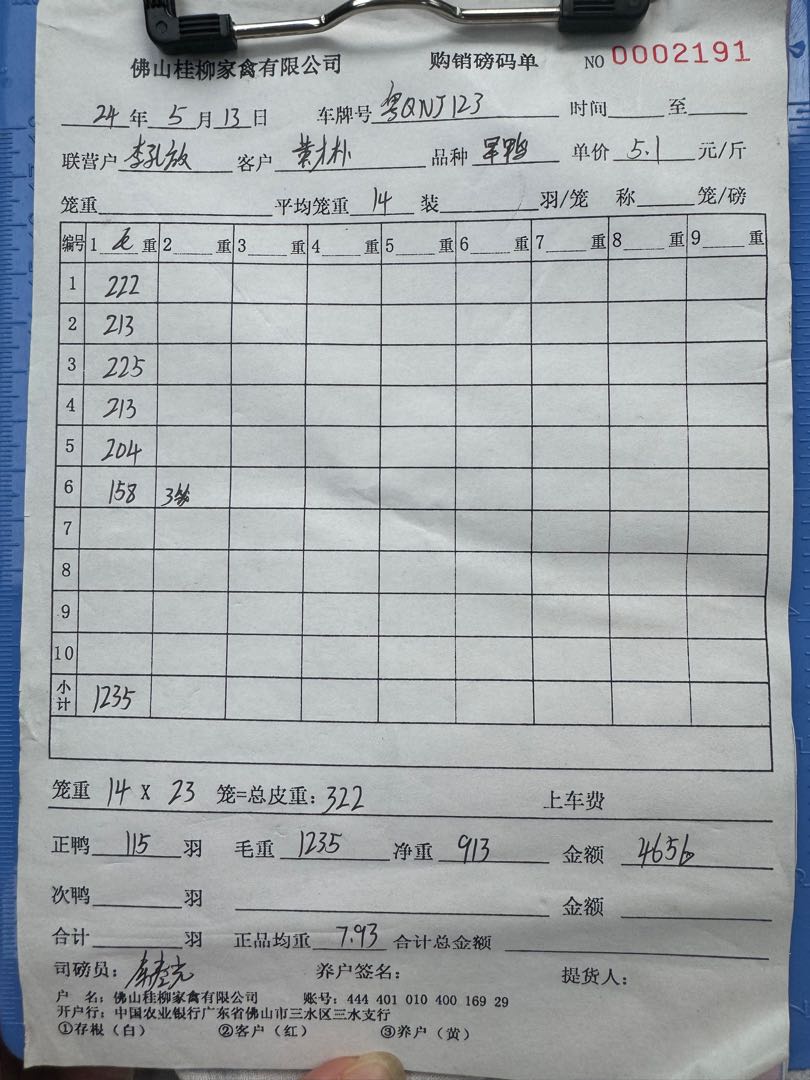 佛山桂柳家禽有限公司 购销磅码单 NO 0002191
24年 5月 13日 车牌号 粤QNJ123 时间 至
联营户 李孔放 客户 黄才朴 品种 旱鸭 单价 5.1 元/斤
笼重 平均笼重 14 装 羽/笼 称 笼/磅
编号 1 毛 重 2 重 3 重 4 重 5 重 6 重 7 重 8 重 9 重
1 222
2 213
3 225
4 213
5 204
6 158 3笼
7
8
9
10
小计 1235
笼重 14 X 23 笼=总皮重: 322 上车费
正鸭 115 羽 毛重 1235 净重 913 金额 4656
次鸭 羽 金额
合计 羽 正品均重 7.93 合计总金额
司磅员: 养户签名: 提货人:
户 名: 佛山桂柳家禽有限公司 账号: 444 401 010 400 169 29
开户行: 中国农业银行广东省佛山市三水区三水支行
①存根(白) ②客户(红) ③养户(黄)